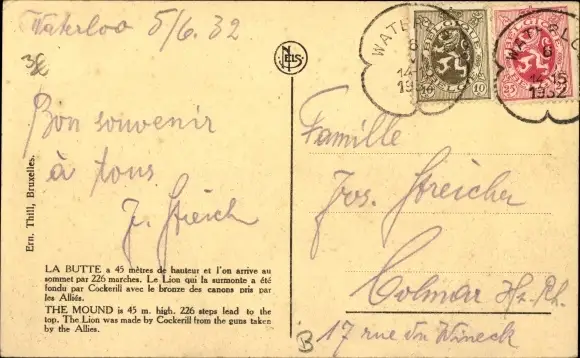 Waterloo 5/6. 32
38
NELS
Bon souvenir
à tous
J. Streich
Ern. Thill, Bruxelles.
LA BUTTE a 45 mètres de hauteur et l'on arrive au
sommet par 226 marches. Le Lion qui la surmonte a été
fondu par Cockerill avec le bronze des canons pris par
les Alliés.
THE MOUND is 45 m. high. 226 steps lead to the
top. The Lion was made by Cockerill from the guns taken
by the Allies.
WATERLO
14-15
1932
BELGIQUE
10 10
BELGIQUE
25
Famille
Jos. Streicher
Colmar Ht. Rh.
17 rue du Wineck
B